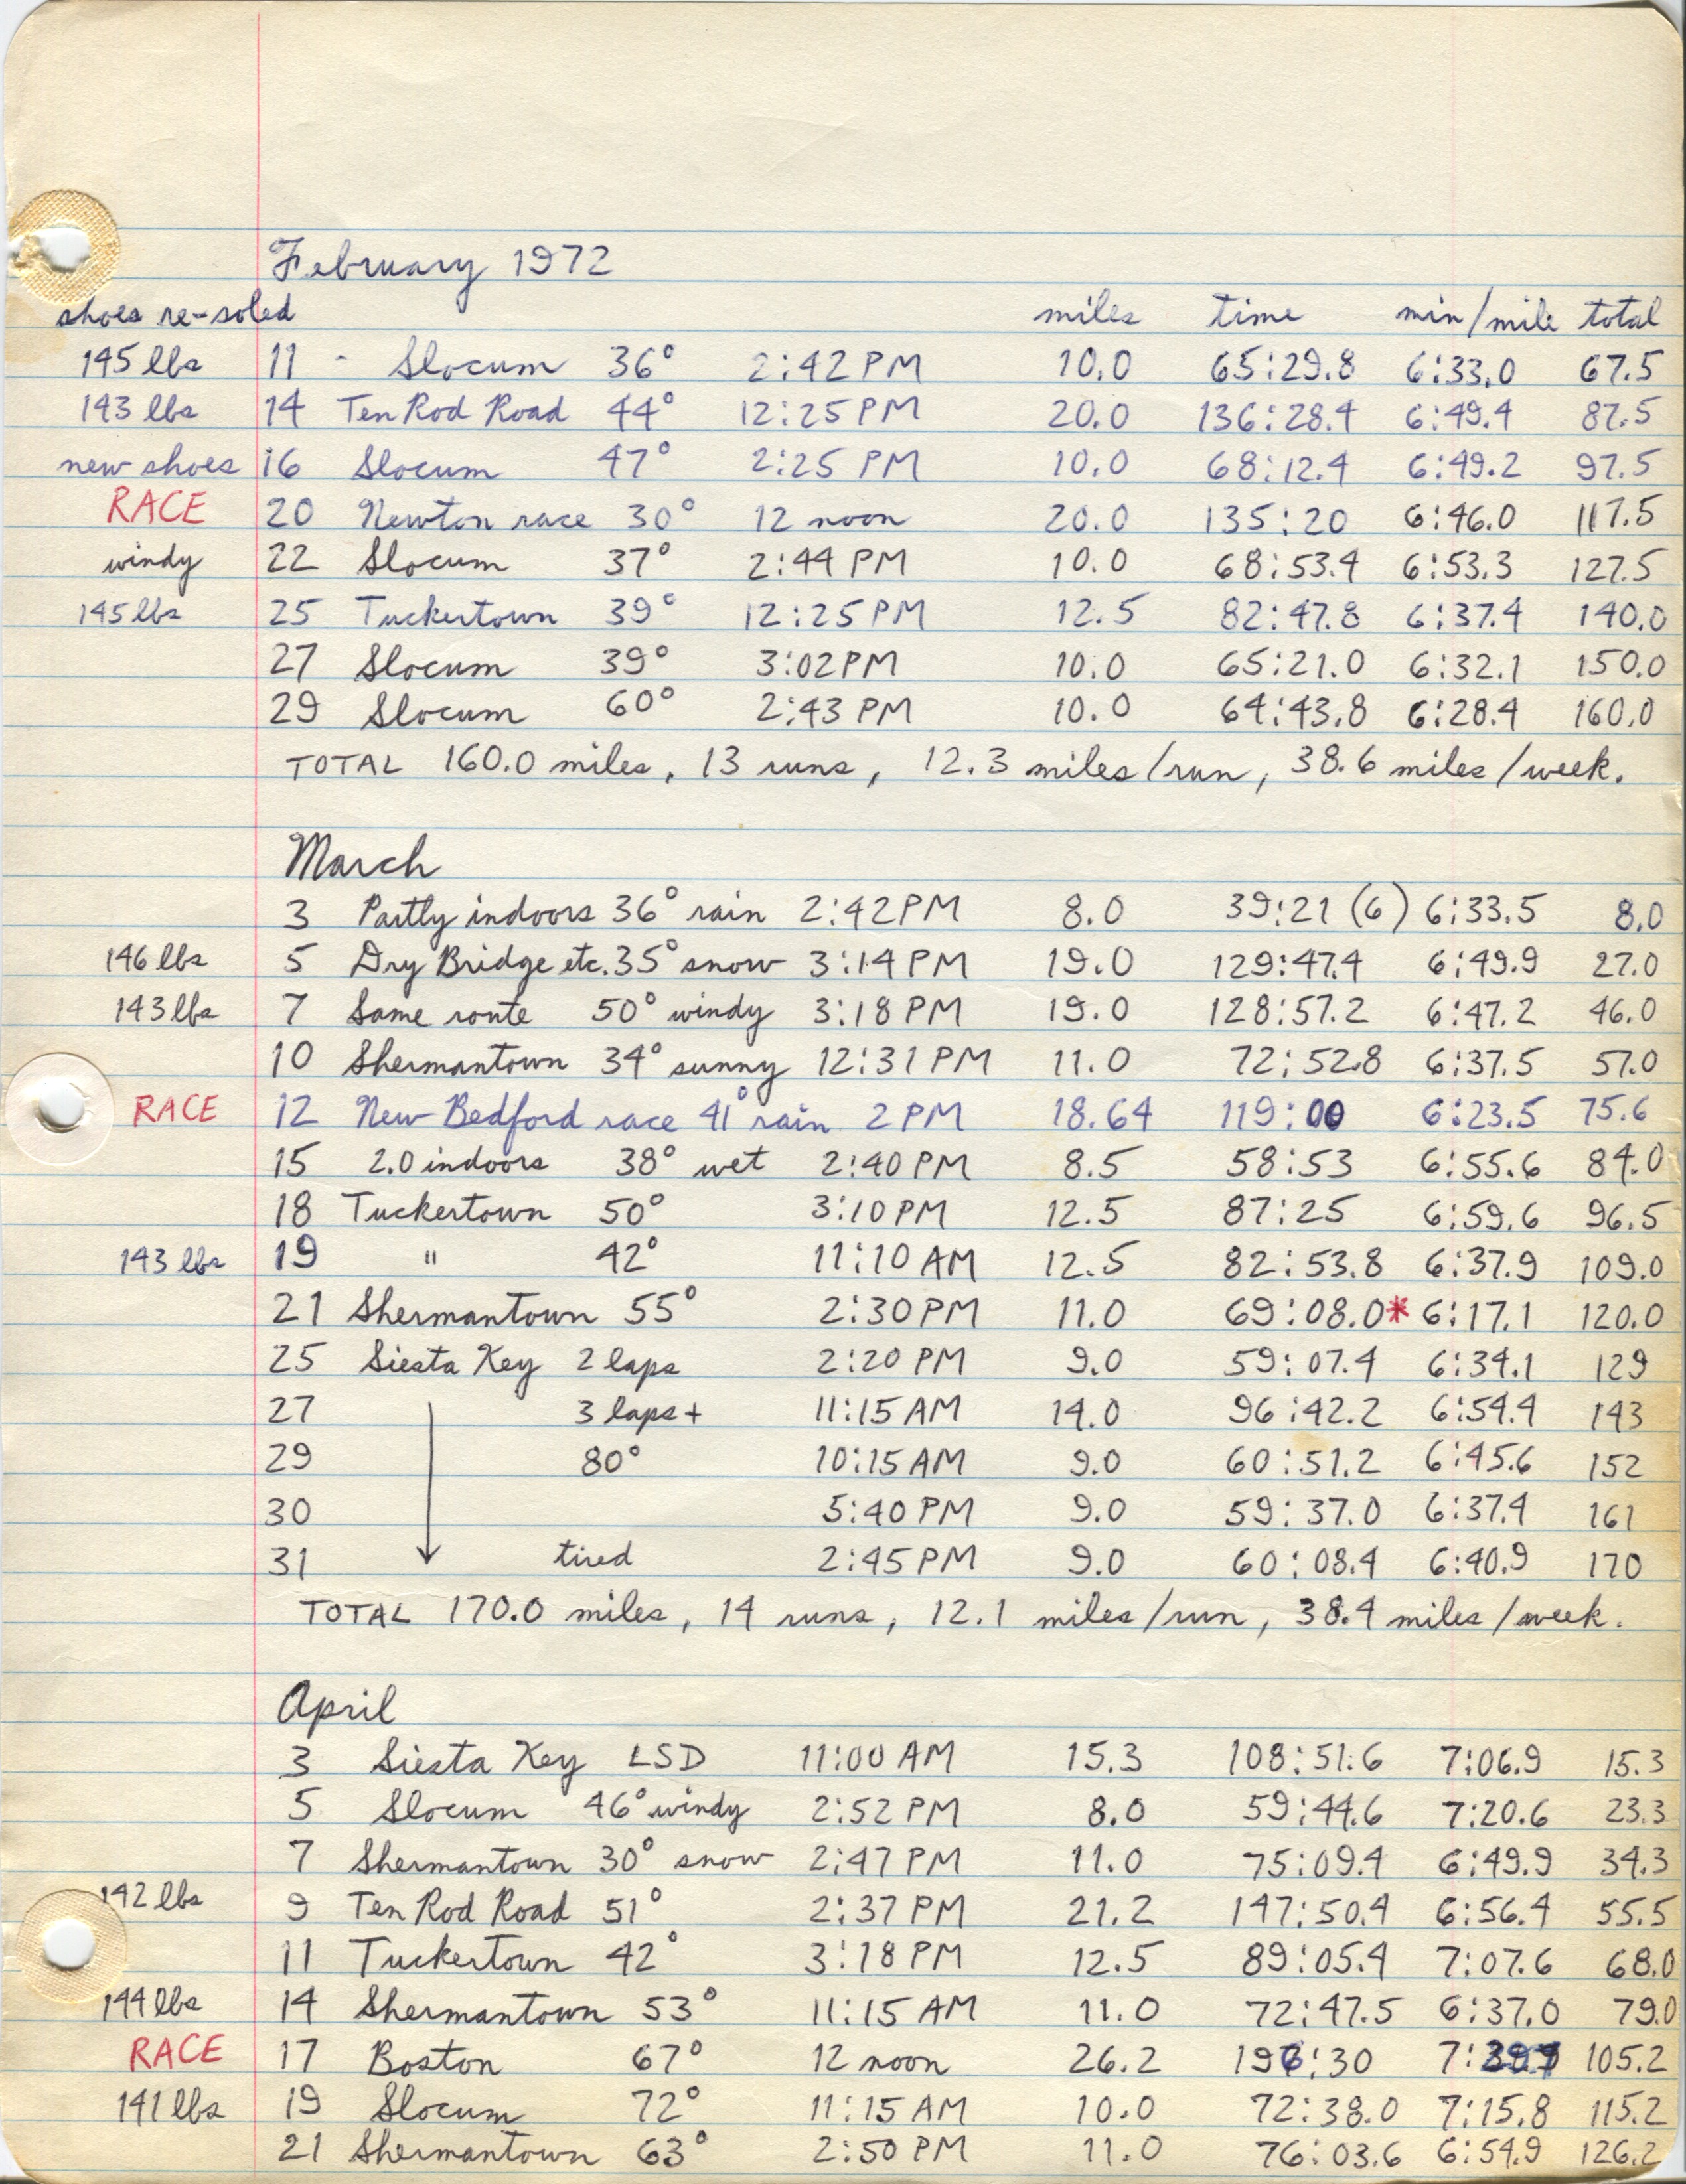 February 1972
shoes re-soled miles time min/mile total
145 lbs 11 - Slocum 36° 2:42 PM 10.0 65:29.8 6:33.0 67.5
143 lbs 14 Ten Rod Road 44° 12:25 PM 20.0 136:28.4 6:49.4 87.5
new shoes 16 Slocum 47° 2:25 PM 10.0 68:12.4 6:49.2 97.5
RACE 20 Newton race 30° 12 noon 20.0 135:20 6:46.0 117.5
windy 22 Slocum 37° 2:44 PM 10.0 68:53.4 6:53.3 127.5
145 lbs 25 Tuckertown 39° 12:25 PM 12.5 82:47.8 6:37.4 140.0
27 Slocum 39° 3:02 PM 10.0 65:21.0 6:32.1 150.0
29 Slocum 60° 2:43 PM 10.0 64:43.8 6:28.4 160.0
TOTAL 160.0 miles, 13 runs, 12.3 miles/run, 38.6 miles/week.
March
3 Partly indoors 36° rain 2:42 PM 8.0 39:21 (6) 6:33.5 8.0
146 lbs 5 Dry Bridge etc. 35° snow 3:14 PM 19.0 129:47.4 6:49.9 27.0
143 lbs 7 Same route 50° windy 3:18 PM 19.0 128:57.2 6:47.2 46.0
10 Shermantown 34° sunny 12:31 PM 11.0 72:52.8 6:37.5 57.0
RACE 12 New Bedford race 41° rain 2 PM 18.64 119:00 6:23.5 75.6
15 2.0 indoors 38° wet 2:40 PM 8.5 58:53 6:55.6 84.0
18 Tuckertown 50° 3:10 PM 12.5 87:25 6:59.6 96.5
143 lbs 19 " 42° 11:10 AM 12.5 82:53.8 6:37.9 109.0
21 Shermantown 55° 2:30 PM 11.0 69:08.0* 6:17.1 120.0
25 Siesta Key 2 laps 2:20 PM 9.0 59:07.4 6:34.1 129
27 3 laps+ 11:15 AM 14.0 96:42.2 6:54.4 143
29 80° 10:15 AM 9.0 60:51.2 6:45.6 152
30 5:40 PM 9.0 59:37.0 6:37.4 161
31 tired 2:45 PM 9.0 60:08.4 6:40.9 170
TOTAL 170.0 miles, 14 runs, 12.1 miles/run, 38.4 miles/week.
April
3 Siesta Key LSD 11:00 AM 15.3 108:51.6 7:06.9 15.3
5 Slocum 46° windy 2:52 PM 8.0 59:44.6 7:20.6 23.3
7 Shermantown 30° snow 2:47 PM 11.0 75:09.4 6:49.9 34.3
142 lbs 9 Ten Rod Road 51° 2:37 PM 21.2 147:50.4 6:56.4 55.5
11 Tuckertown 42° 3:18 PM 12.5 89:05.4 7:07.6 68.0
144 lbs 14 Shermantown 53° 11:15 AM 11.0 72:47.5 6:37.0 79.0
RACE 17 Boston 67° 12 noon 26.2 105.2
141 lbs 19 Slocum 72° 11:15 AM 10.0 72:38.0 7:15.8 115.2
21 Shermantown 63° 2:50 PM 11.0 76:03.6 6:54.9 126.2